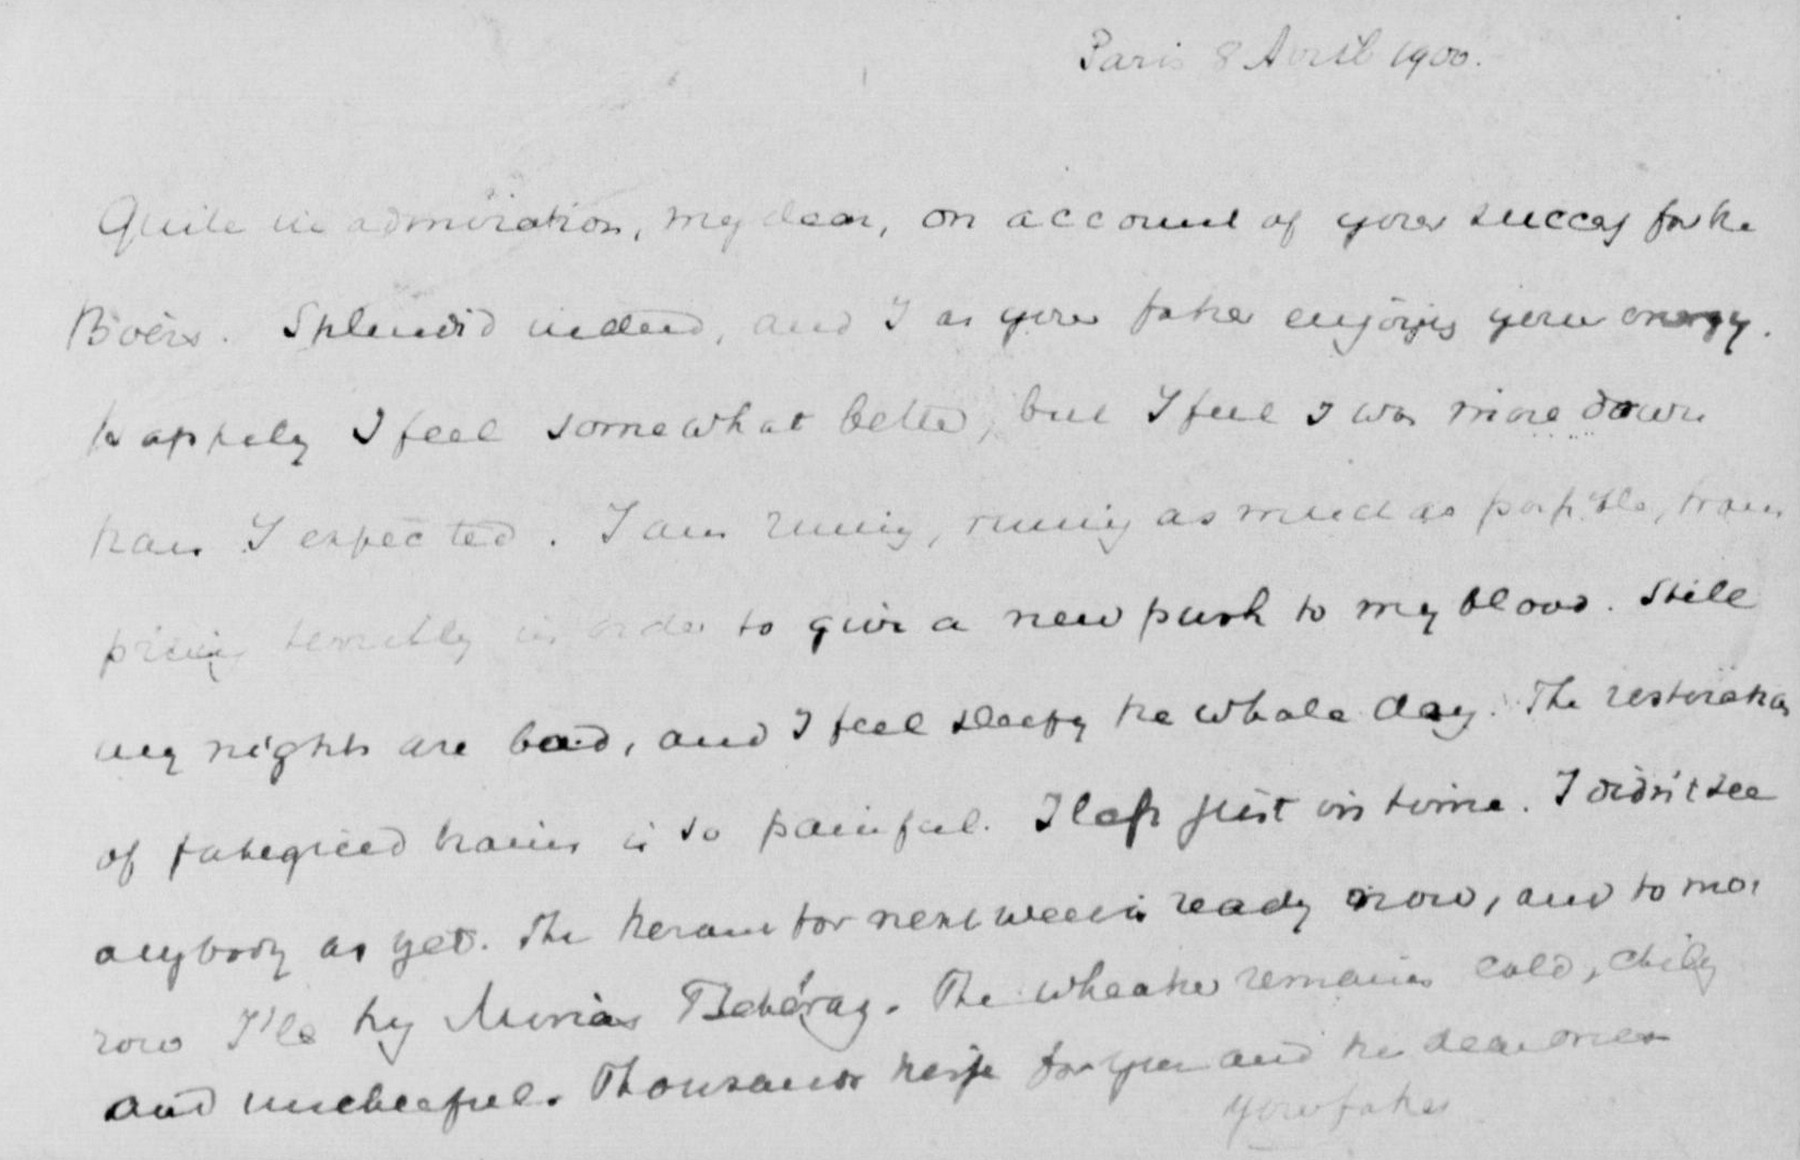 Paris 8 Avril 1900.
Quite in admiration, my dear, on account of your succes for the
Boërs. Splendid indeed, and I as your father enjoys your energy.
Happily I feel somewhat better, but I feel I was more down
than I expected. I am runing, runing as much as possible, trans
piring terribly in order to give a new push to my blood. Still
my nights are bad, and I feel sleepy the whole day. The restoration
of fategued brains is so painful. I left just in time. I didn't see
anybody as yet. The for next week is ready now, and to mor
row I'll try Minas Tchéraz. The wheather remains cold, chily
and uncheeful. Thousand kisse for you and the dear ones
your father